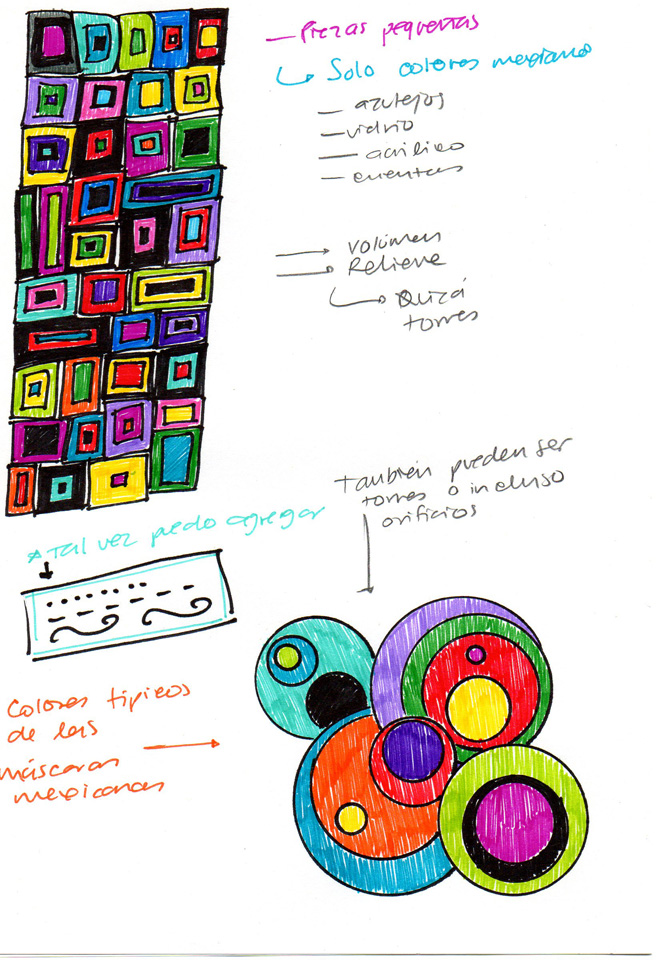 — Piezas pequeñas
Solo colores mexicano
— azulejos
— vidrio
— acrílico
— cuentas
volúmen
Relieve
Quizá
torres
También pueden ser
torres o incluso
orificios
* Tal vez puedo agregar
Colores típicos
de las
máscaras
mexicanas